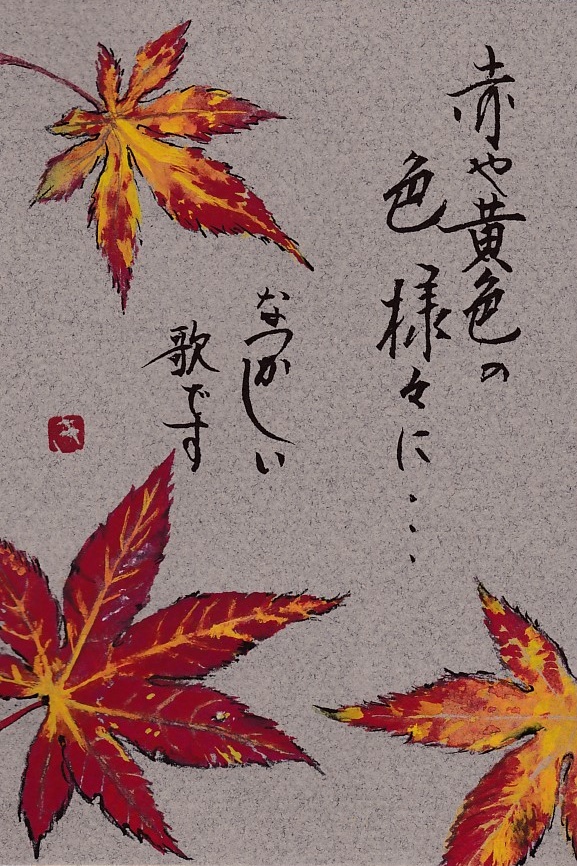 赤や黄色の
色様々に・・・
なつかしい
歌です